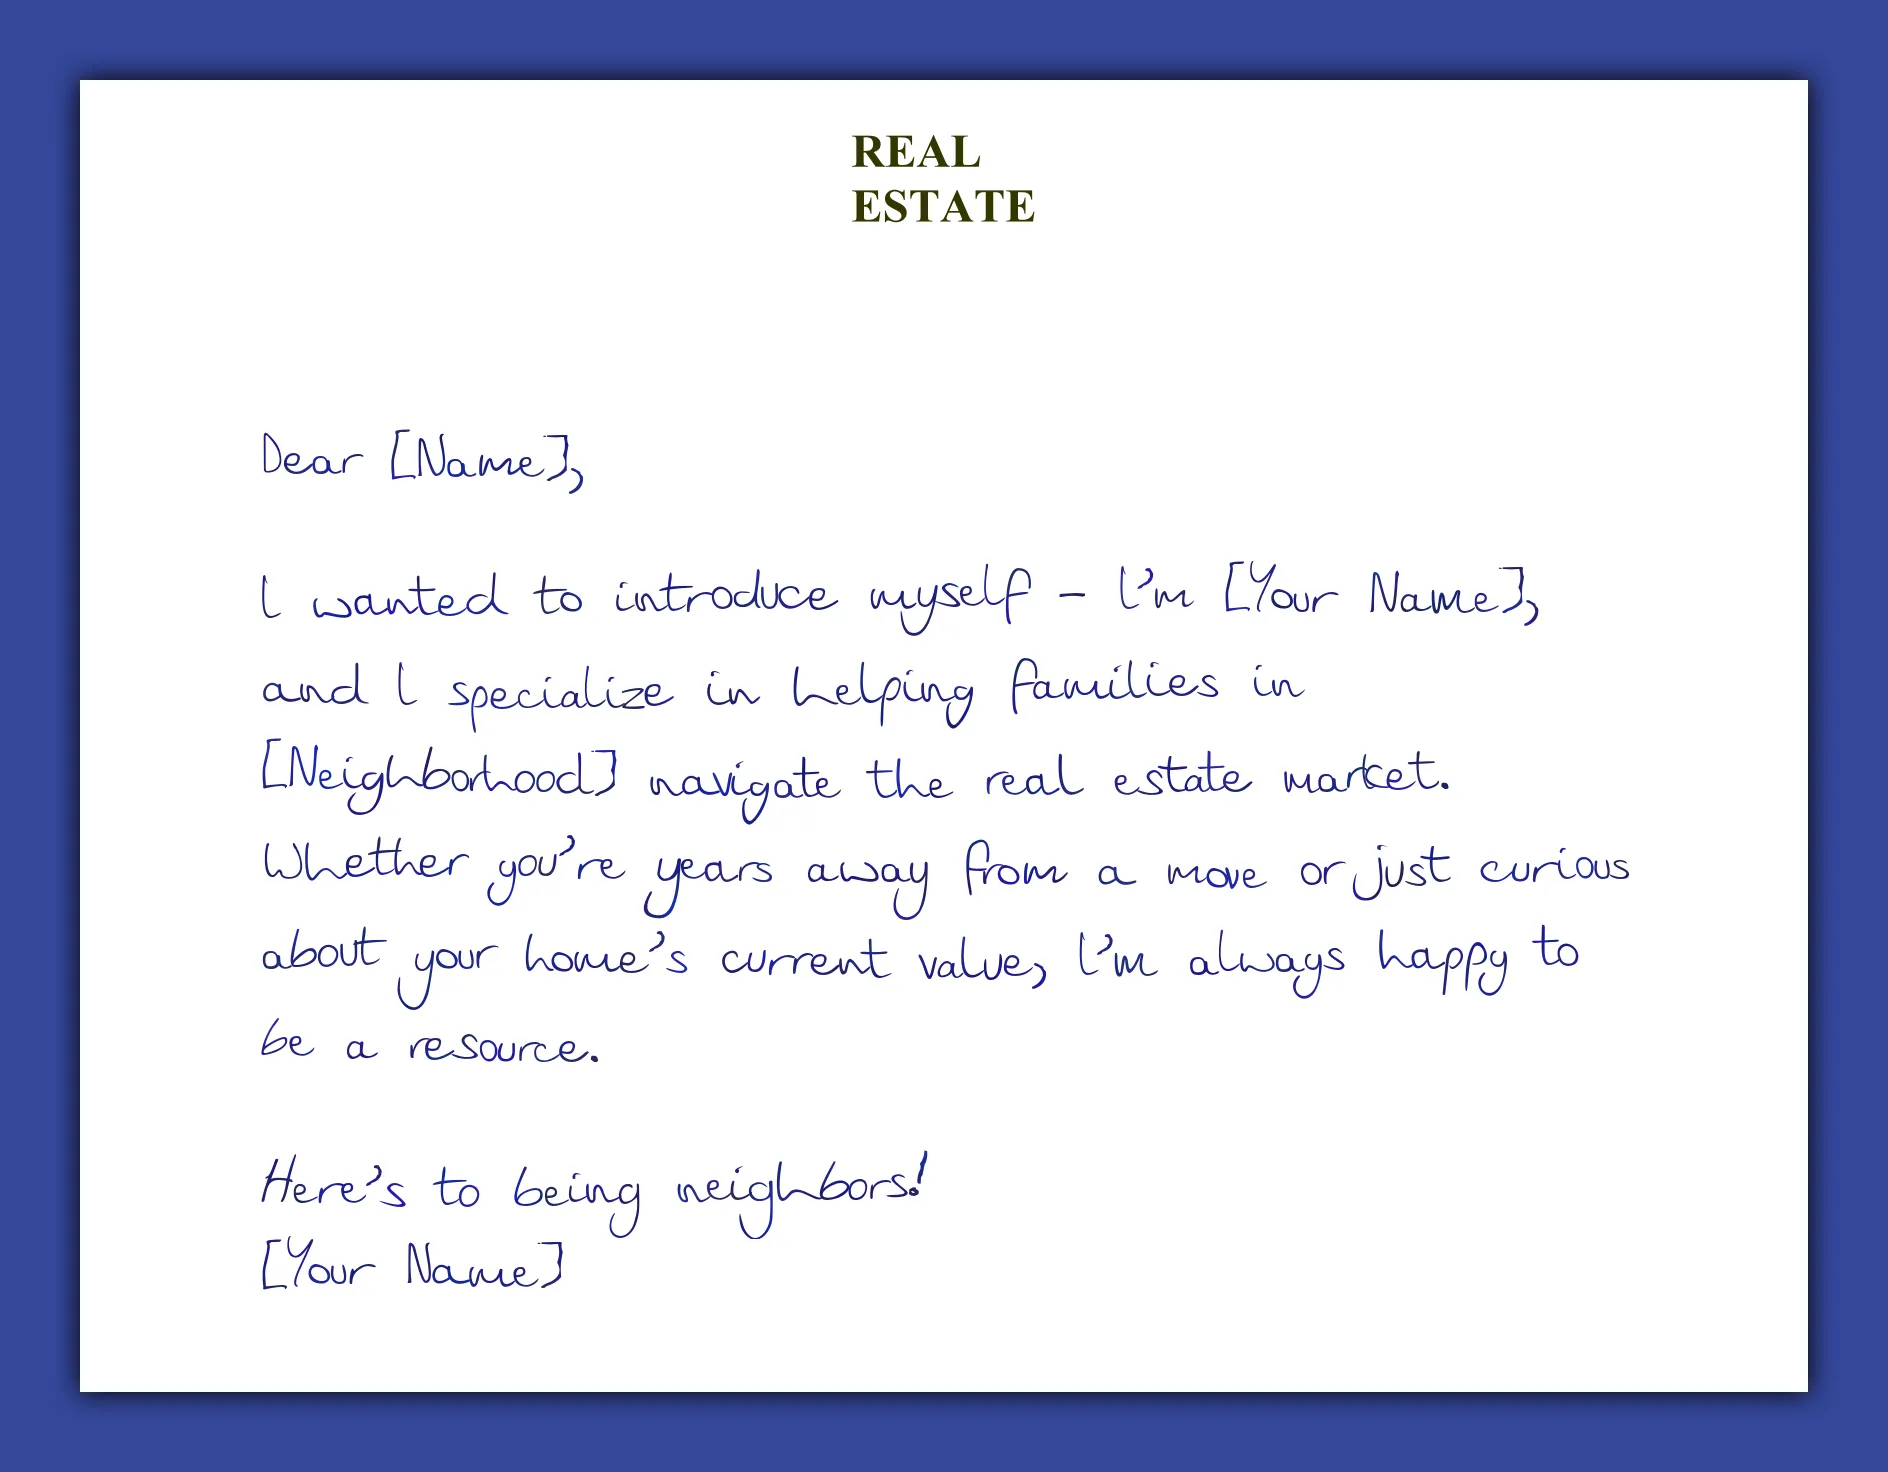 REAL
ESTATE
Dear [Name],
I wanted to introduce myself – I'm [Your Name],
and I specialize in helping families in
[Neighborhood] navigate the real estate market.
Whether you're years away from a move or just curious
about your home's current value, I'm always happy to
be a resource.
Here's to being neighbors!
[Your Name]